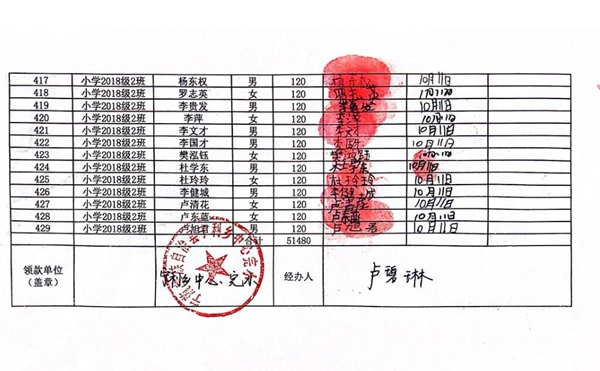 417 小学2018级2班 杨东权 男 120 10月11日
418 小学2018级2班 罗志英 女 120
419 小学2018级2班 李贵发 男 120 10月11日
420 小学2018级2班 李萍 女 120 10月11日
421 小学2018级2班 李文才 男 120 李文才 10月11日
422 小学2018级2班 李国才 男 120 10月11日
423 小学2018级2班 樊泓钰 女 120
424 小学2018级2班 杜学东 男 120 杜学东 10月11日
425 小学2018级2班 杜玲玲 女 120 杜玲玲 10月11日
426 小学2018级2班 李健城 男 120 10月11日
427 小学2018级2班 卢清花 女 120 10月11日
428 小学2018级2班 卢东蓝 女 120 卢东蓝 10月11日
429 小学2018级2班 卢旭君 男 120 10月11日
合计 51480
领款单位 经办人 卢碧琳
（盖章） 乡中心完小